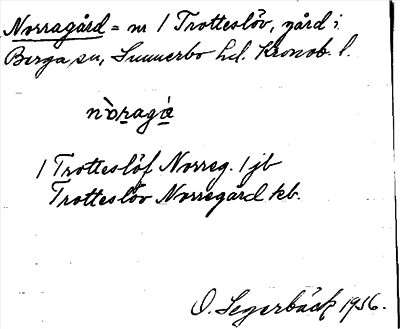 Norragård = nr 1 Trotteslöv, gård i
Berga sn, Sunnerbo hd. Kronob. l.
nò̱ragá̱
1 Trotteslöf Norreg. 1 jb
Trotteslöv Norregård kb.
O. Segerbäck 1956.